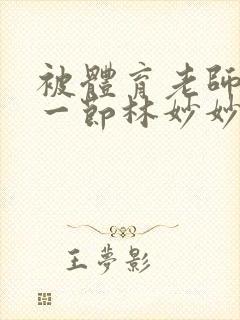 被體育老師
一節林妙妙
王夢影